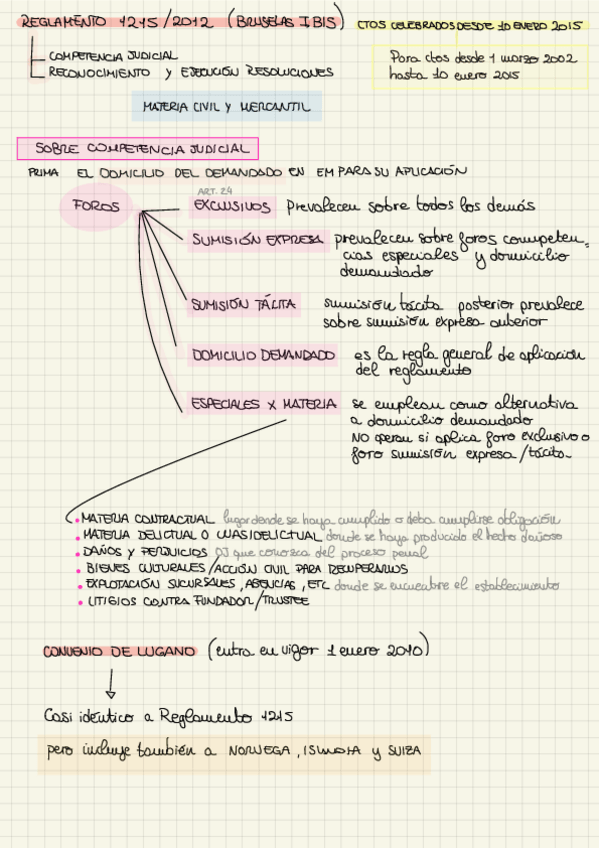 REGLAMENTO 1215/2012 (BRUSELAS I BIS)
CTOS CELEBRADOS DESDE 10 ENERO 2015
COMPETENCIA JUDICIAL
RECONOCIMIENTO y EJECUCIÓN RESOLUCIONES
Para ctos desde 1 marzo 2002
hasta 10 enero 2015
MATERIA CIVIL Y MERCANTIL
SOBRE COMPETENCIA JUDICIAL
PRIMA EL DOMICILIO DEL DEMANDADO EN EM PARA SU APLICACIÓN
FOROS
ART. 24
EXCLUSIVOS prevalecen sobre todos los demás
SUMISIÓN EXPRESA prevalecen sobre foros competen-
cias especiales y domicilio
demandado
SUMISIÓN TÁCITA sumisión tácita posterior prevalece
sobre sumisión expresa anterior
DOMICILIO DEMANDADO es la regla general de aplicación
del reglamento
ESPECIALES X MATERIA se emplean como alternativa
a domicilio demandado
NO operan si aplica foro exclusivo o
foro sumisión expresa/tácita.
• MATERIA CONTRACTUAL lugar donde se haya cumplido o deba cumplirse obligación
• MATERIA DELICTUAL O CUASIDELICTUAL donde se haya producido el hecho dañoso
• DAÑOS Y PERJUICIOS OJ que conozca del proceso penal
• BIENES CULTURALES/ACCIÓN CIVIL PARA RECUPERARLOS
• EXPLOTACIÓN SUCURSALES, AGENCIAS, ETC donde se encuentre el establecimiento
• LITIGIOS CONTRA FUNDADOR/TRUSTEE
CONVENIO DE LUGANO (entra en vigor 1 enero 2010)
Casi idéntico a Reglamento 1215
pero incluye también a NORUEGA, ISLANDIA y SUIZA